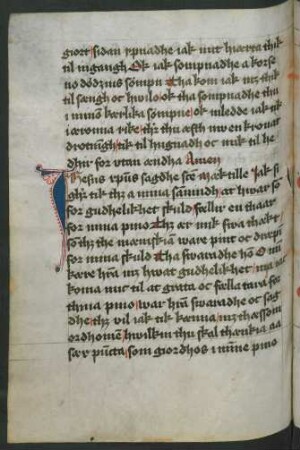 giort sidan rpnadhe iak mit hiærta thik
til ingangh Ok iak sompnadhe a korse
no dödzins sömpn Tha kom iak mz thik
til sængh oc hwilo ok tha sompnadhe thu
i minom kærlika sömpne ok mledde iak tik
i æronna rike thz thu æsth nw en kronat
drotnigh tik til hugnadh oc mik til he
dhir for vtan ændha Amen
Ihesus xpus sagdhe sce mæktille Iak si
ghz tik thz a minna sannind at hwar so
for gudhelikhet skuld fællir en thaar
for minna pino thz ær mik swa thækt
som thz mænniskian ware pint oc dræpn
for minna skuld Tha swaradhe hon O min
kære hrra mz hwat gudhelikhet ma iak
koma mit til at grata oc fælla tara for
thinna pino war hrra swaradhe oc sag
dhe thz vil iak tik kænna mz thæssom
ordhomen hwilkin thu skal thænkia aa
sær puncta som giordhos i minne pino